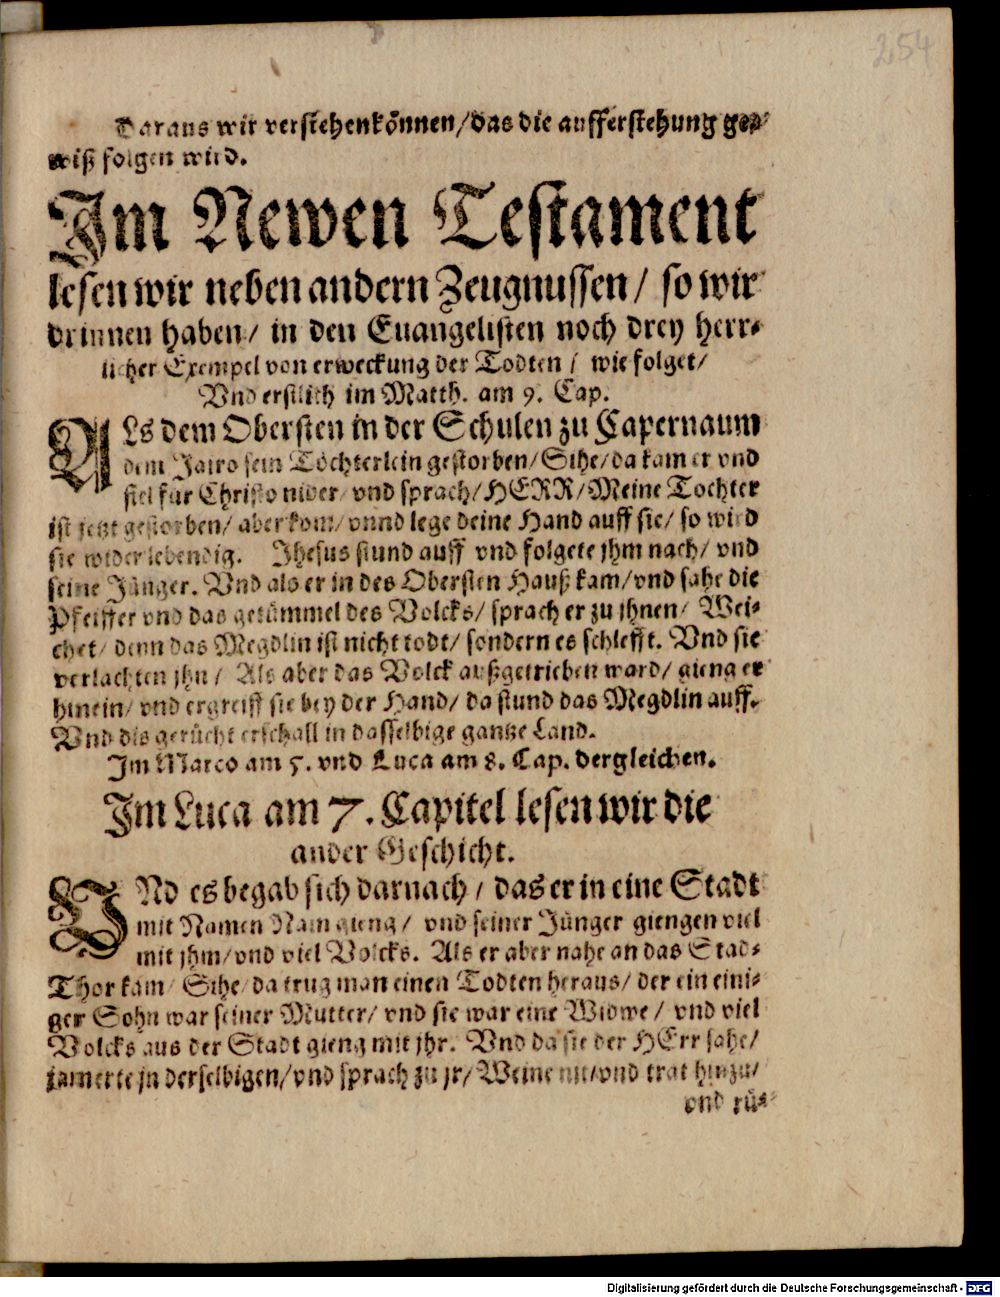 254
Daraus wir verstehen können/das die aufferstehung ge⸗
wiß folgen wird.
Im Newen Testament
lesen wir neben andern Zeugnussen/ so wir
drinnen haben/ in den Euangelisten noch drey herr⸗
licher Exempel von erweckung der Todten/ wie folget/
Vnd erstlich im Matth. am 9. Cap.
ALs dem Obersten in der Schulen zu Capernaum
dem Jairo sein Töchterlein gestorben/Sihe/da kam er vnd
fiel für Christo nider/vnd sprach/HERR/Meine Tochter
ist jetzt gestorben/ aber kom/ vnnd lege deine Hand auff sie/ so wird
sie wider lebendig. Jhesus stund auff vnd folgete jhm nach/ vnd
seine Jünger. Vnd als er in des Obersten Hauß kam/vnd sahe die
Pfeiffer vnd das getümmel des Volcks/ sprach er zu jhnen/ Wei⸗
chet/ denn das Megdlin ist nicht todt/ sondern es schlefft. Vnd sie
verlachten jhn/ Als aber das Volck außgetrieben ward/ gieng er
hinein/ vnd ergreiff sie bey der Hand/ da stund das Megdlin auff.
Vnd dis gerücht erschall in dasselbige gantze Land.
Im Marco am 5. vnd Luca am 8. Cap. dergleichen.
Im Luca am 7. Capitel lesen wir die
ander Geschicht.
VNd es begab sich darnach/ das er in eine Stadt
mit Namen Nain gieng/ vnd seiner Jünger giengen viel
mit jhm/vnd viel Volcks. Als er aber nahe an das Stad⸗
Thor kam/ Sihe/da trug man einen Todten heraus/ der ein eini⸗
ger Sohn war seiner Mutter/ vnd sie war eine Widwe/ vnd viel
Volcks aus der Stadt gieng mit jhr. Vnd da sie der HErr sahe/
jamerte jn derselbigen/vnd sprach zu jr/Weine nit/vnd trat hinzu/
vnd rü⸗
Digitalisierung gefördert durch die Deutsche Forschungsgemeinschaft - DFG